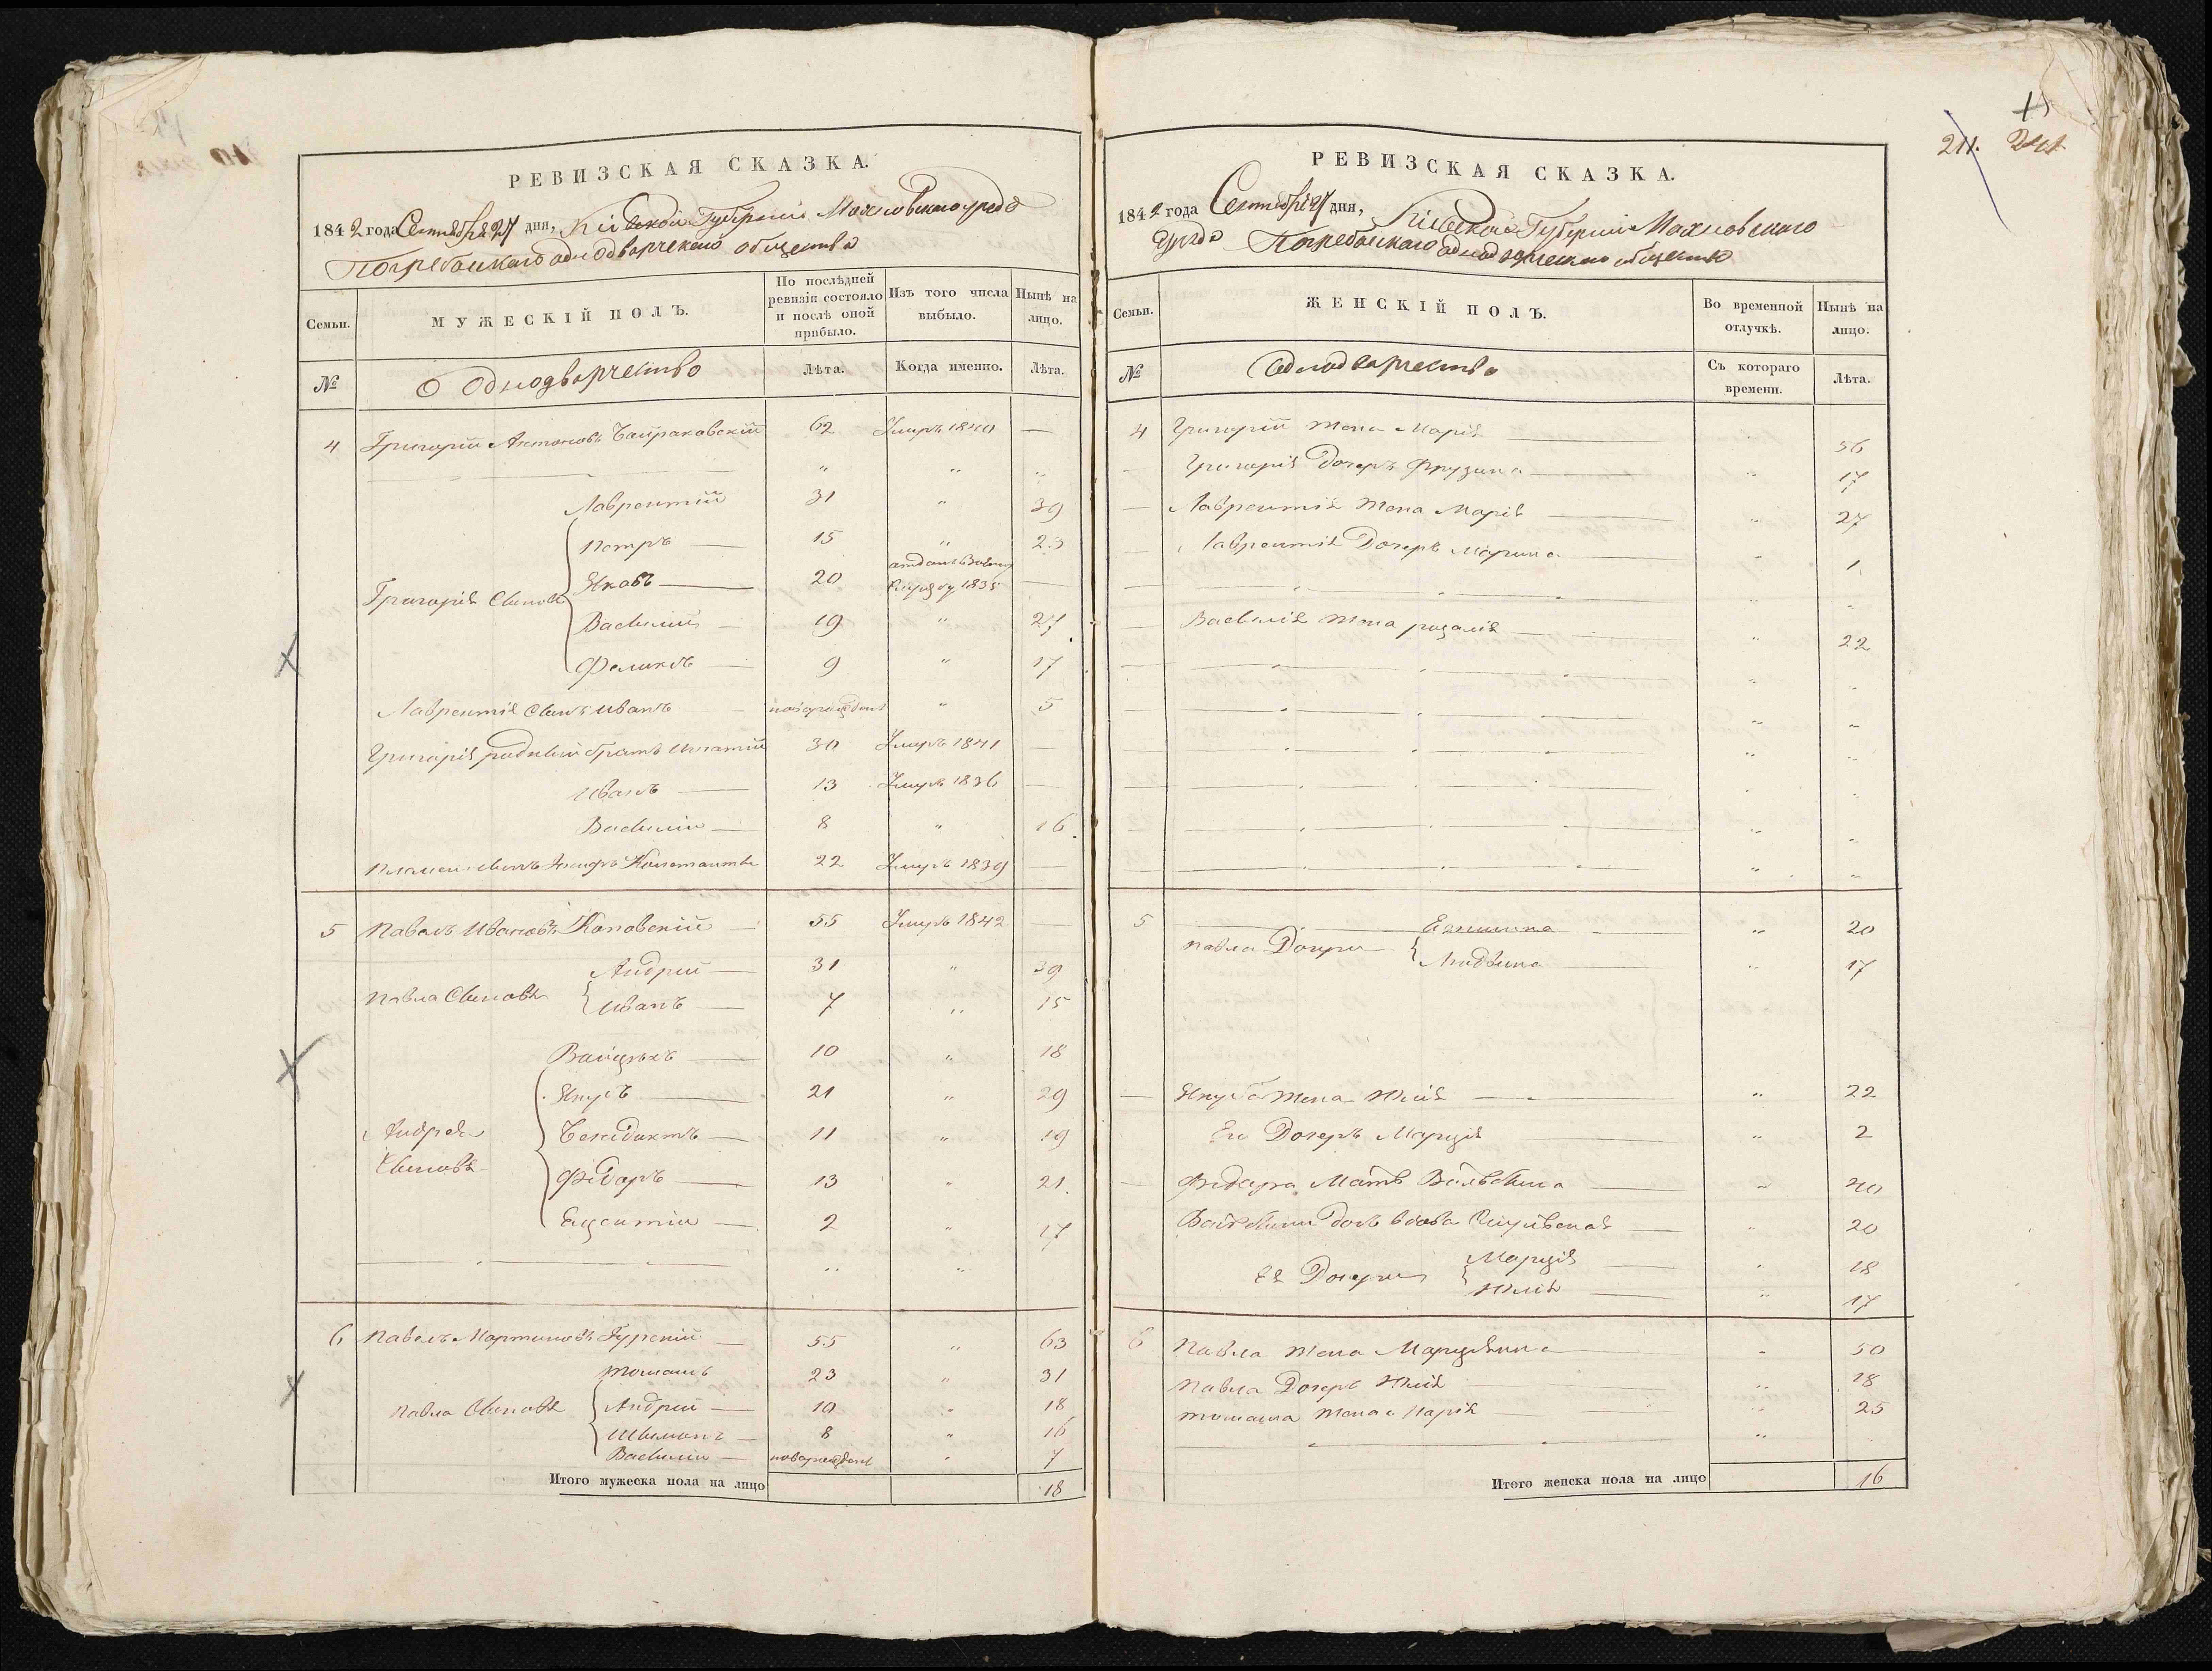 РЕВИЗСКАЯ СКАЗКА.
1842 года Сентября 27 дня, Кіевской Губерніи Махновскаго уезда
Погребыскаго однодворческаго общества
Семьи.
МУЖЕСКІЙ ПОЛЪ.
По послѣдней ревизіи состояло и послѣ оной прибыло.
Изъ того числа выбыло.
Нынѣ на лицо.
№
О Однодворчество
Лѣта.
Когда именно.
Лѣта.
4 Григорій Антоновъ Байраковскій 62 Умеръ 1840 —
Лаврентій 31 " 39
Петръ — 15 " 23
Яковъ — 20 отданъ въ 1835 —
Григорія Сыновя
Василій — 19 " 27
Феликсъ — 9 " 17
Лаврентія Сынъ Иванъ — новорожденъ " 5
Григорія родный братъ Игнатій 30 Умеръ 1841
Иванъ — 13 Умеръ 1836 —
Василій — 8 " 16
Константинъ 22 Умеръ 1839 —
5 Павелъ Ивановъ — 55 Умеръ 1842 —
Андрій — 31 " 39
Павла Сыновя
Иванъ — 7 " 15
Войцѣхъ — 10 " 18
— 21 " 29
Андрея Сыновя
Бенедиктъ — 11 " 19
Фёдоръ — 13 " 21
— 2 " 17
6 Павелъ Мартиновъ Гурскій — 55 " 63
Томашъ 23 " 31
Павла Сыновя
Андрій — 10 " 18
Шымонъ — 8 " 16
Василій — новорожденъ " 7
Итого мужеска пола на лицо 18
211.
РЕВИЗСКАЯ СКАЗКА.
1842 года Сентября 27 дня, Кіевской Губерніи Махновскаго
уезда Погребыскаго однодворческаго общества
Семьи.
ЖЕНСКІЙ ПОЛЪ.
Во временной отлучкѣ.
Нынѣ на лицо.
№
Однодворчество
Съ котораго времени.
Лѣта.
4 Григорія жена Марія — " 56
Григорія дочеръ Фрузина — " 17
Лаврентія жена Марія — " 27
Лаврентія Дочеръ Марина — " 1
Василія жена розалія — " 22
5 — 20
Павла Дочери
Людвика — " 17
жена Юлія — " 22
Его Дочеръ Марція — " 2
Федора Мать — " 40
вдова — " 20
Её Дочери
Марція — " 18
Юлія — " 17
6 Павла жена Марцѣяна — " 50
Павла Дочеръ Юлія — " 18
томаша жена Марія — " 25
Итого женска пола на лицо 16